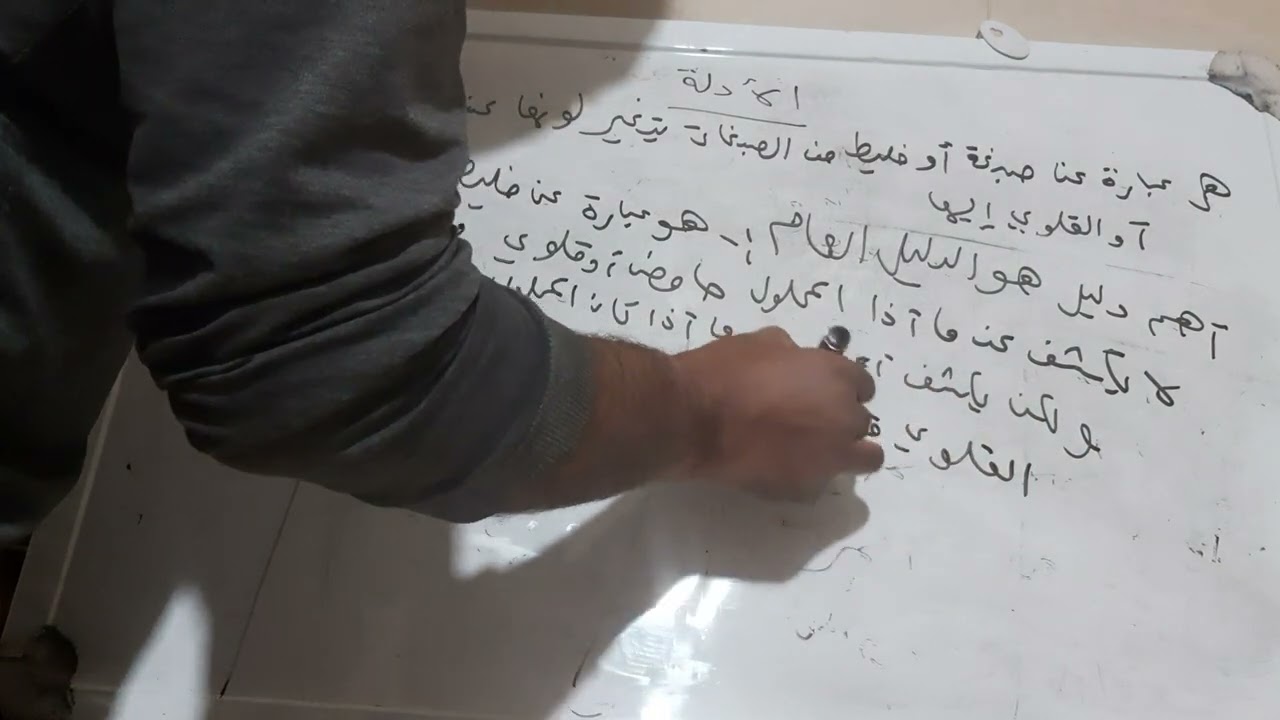 الأدلة
هي عبارة عن صبغة أو خليط من الصبغات يتغير لونها عند
أو القلوي إليها
أهم دليل هو الدليل العام :- هو عبارة عن خليط
لا يكشف عن ما أذا المحلول حامض أو قلوي
ولكن يكشف ما أذا كان المحلول
القلوي